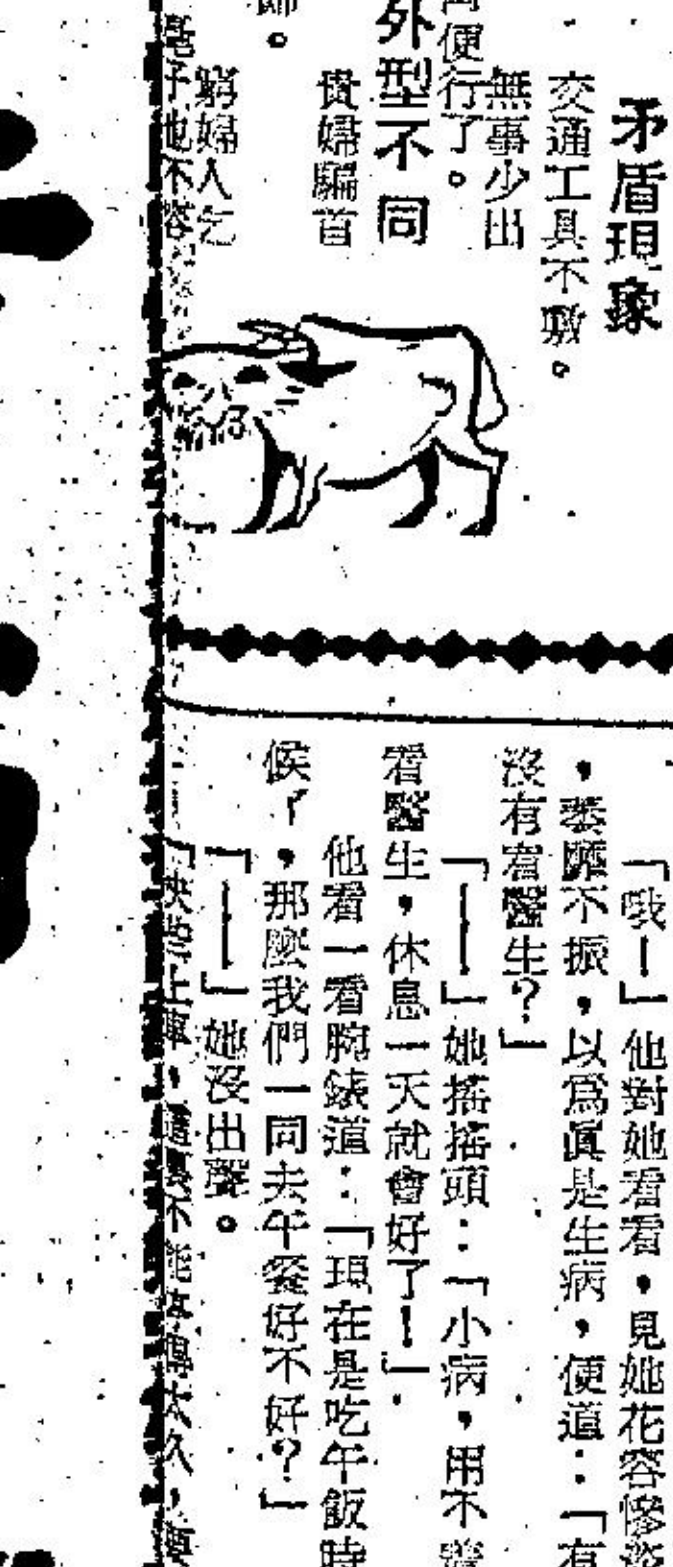 矛盾現象
交通工具不敷。
無事少出
便行了。
外型不同
貴婦騙首
飾。
窮婦人乞
「哦—」他對她看看，見她花容慘淡
，萎靡不振，以爲眞是生病，便道：「有
沒有看醫生？」
「——」她搖搖頭：「小病，用不着
看醫生，休息一天就會好了！」
他看一看腕錶道：「現在是吃午飯時
候了，那麼我們一同去午餐好不好？」
「——」她沒出聲。
「快些上車，這裏不能停得太久，要